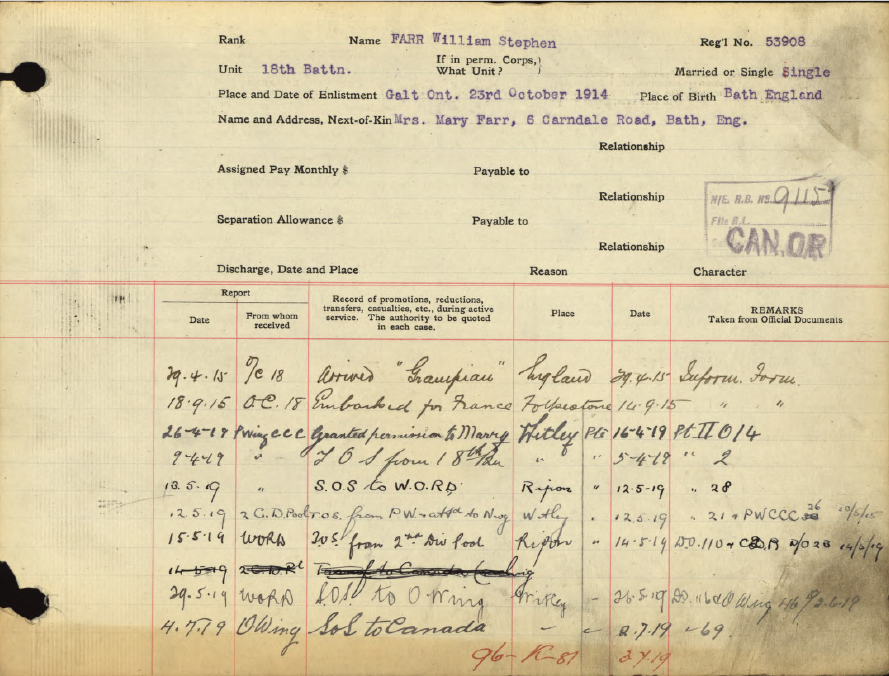 Rank Name FARR William Stephen Reg'l No. 53908
Unit 18th Battn. If in perm. Corps, What Unit? Married or Single Single
Place and Date of Enlistment Galt Ont. 23rd October 1914 Place of Birth Bath England
Name and Address, Next-of-Kin Mrs. Mary Farr, 6 Carndale Road, Bath, Eng.
Relationship
Assigned Pay Monthly $ Payable to
Relationship
H/E. R.B. No. 9115
Separation Allowance $ Payable to
File R.L.
CAN. OR
Relationship
Discharge, Date and Place Reason Character
Report
Date From whom received Record of promotions, reductions, transfers, casualties, etc., during active service. The authority to be quoted in each case. Place Date REMARKS Taken from Official Documents
29.4.15 O/C 18 Arrived "Grampian" England 29.4.15 Inform. Form.
18.9.15 O.C. 18 Embarked for France Folkestone 14.9.15 " "
26-4-19 PWing CCC Granted permission to Marry Witley Pte 16-4-19 Pt II O 14
9-4-19 " T O S from 18th Bn " " 5-4-19 " 2
13.5.19 " S.O.S to W.O.R.D. Ripon " 12.5.19 " 28
12.5.19 2 C.D. Pool T.O.S. from PW + att'd to Witley " 12.5.19 " 21 + PWCCC 26
15.5.19 WORD T.O.S. from 2nd Div Pool Ripon " 14.5.19 D.O. 110 +
14-5-19 Transf to Canada
29.5.19 WORD S.O.S. to O Wing Witley " 26.5.19 O Wing
4.7.19 O Wing SoS to Canada " " 2.7.19 " 69.
96-K-81 3.7.19